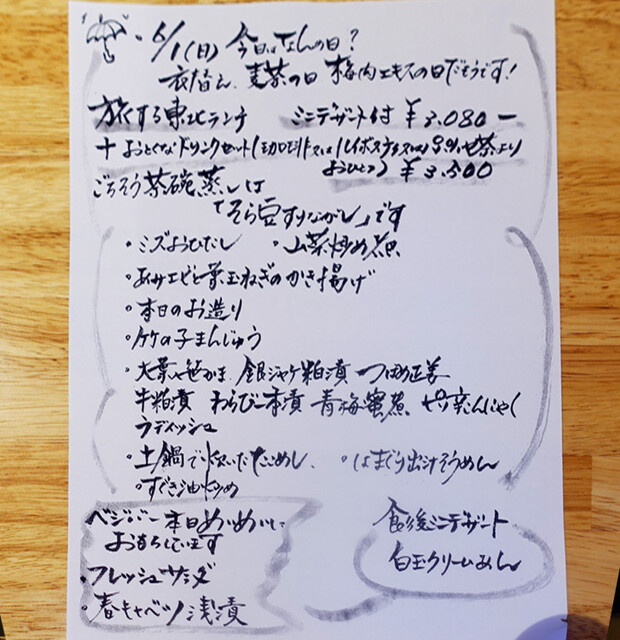 6/1(日) 今日はなんの日?
衣替え、麦茶の日 梅肉エキスの日だそうです!
旅する東北ランチ ミニデザート付 ¥3,080ー
+ おとくなドリンクセット
おひとつ) ¥3,500
ごちそう茶碗蒸しは
「そら豆すりながし」です
・ミズおひたし ・山菜炒め煮
・あみエビと葉玉ねぎのかき揚げ
・本日のお造り
・竹の子まんじゅう
・大葉 笹かま 銀ジャケ粕漬
牛粕漬 わらび一本漬 青梅蜜煮 ピリ辛こんにゃく
ラディッシュ
・土鍋で炊いたたこめし、 ・はまぐり出汁そうめん
・すずき油炒め
ベジバー 本日めいめいに
おもちしています
・フレッシュサラダ
・春キャベツ浅漬
食後ミニデザート
白玉クリームあん